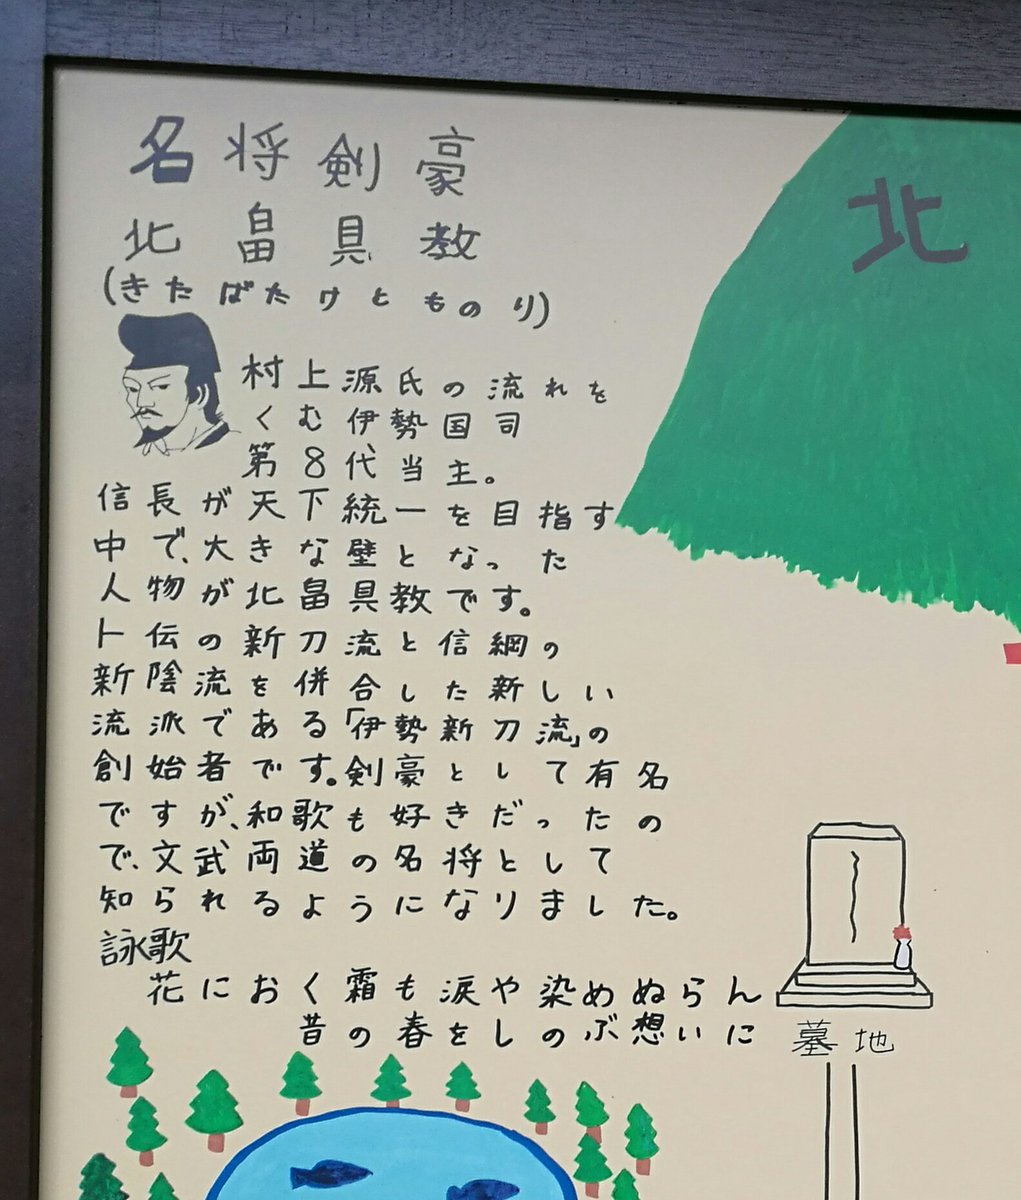 名将剣豪
北畠具教
(きたばたけとものり)
村上源氏の流れを
くむ伊勢国司
第8代当主。
信長が天下統一を目指す
中で、大きな壁となった
人物が北畠具教です。
卜伝の新刀流と信綱の
新陰流を併合した新しい
流派である「伊勢新刀流」の
創始者です。剣豪として有名
ですが、和歌も好きだったの
で、文武両道の名将として
知られるようになりました。
詠歌
花におく霜も涙や染めぬらん
昔の春をしのぶ想いに
北
墓地